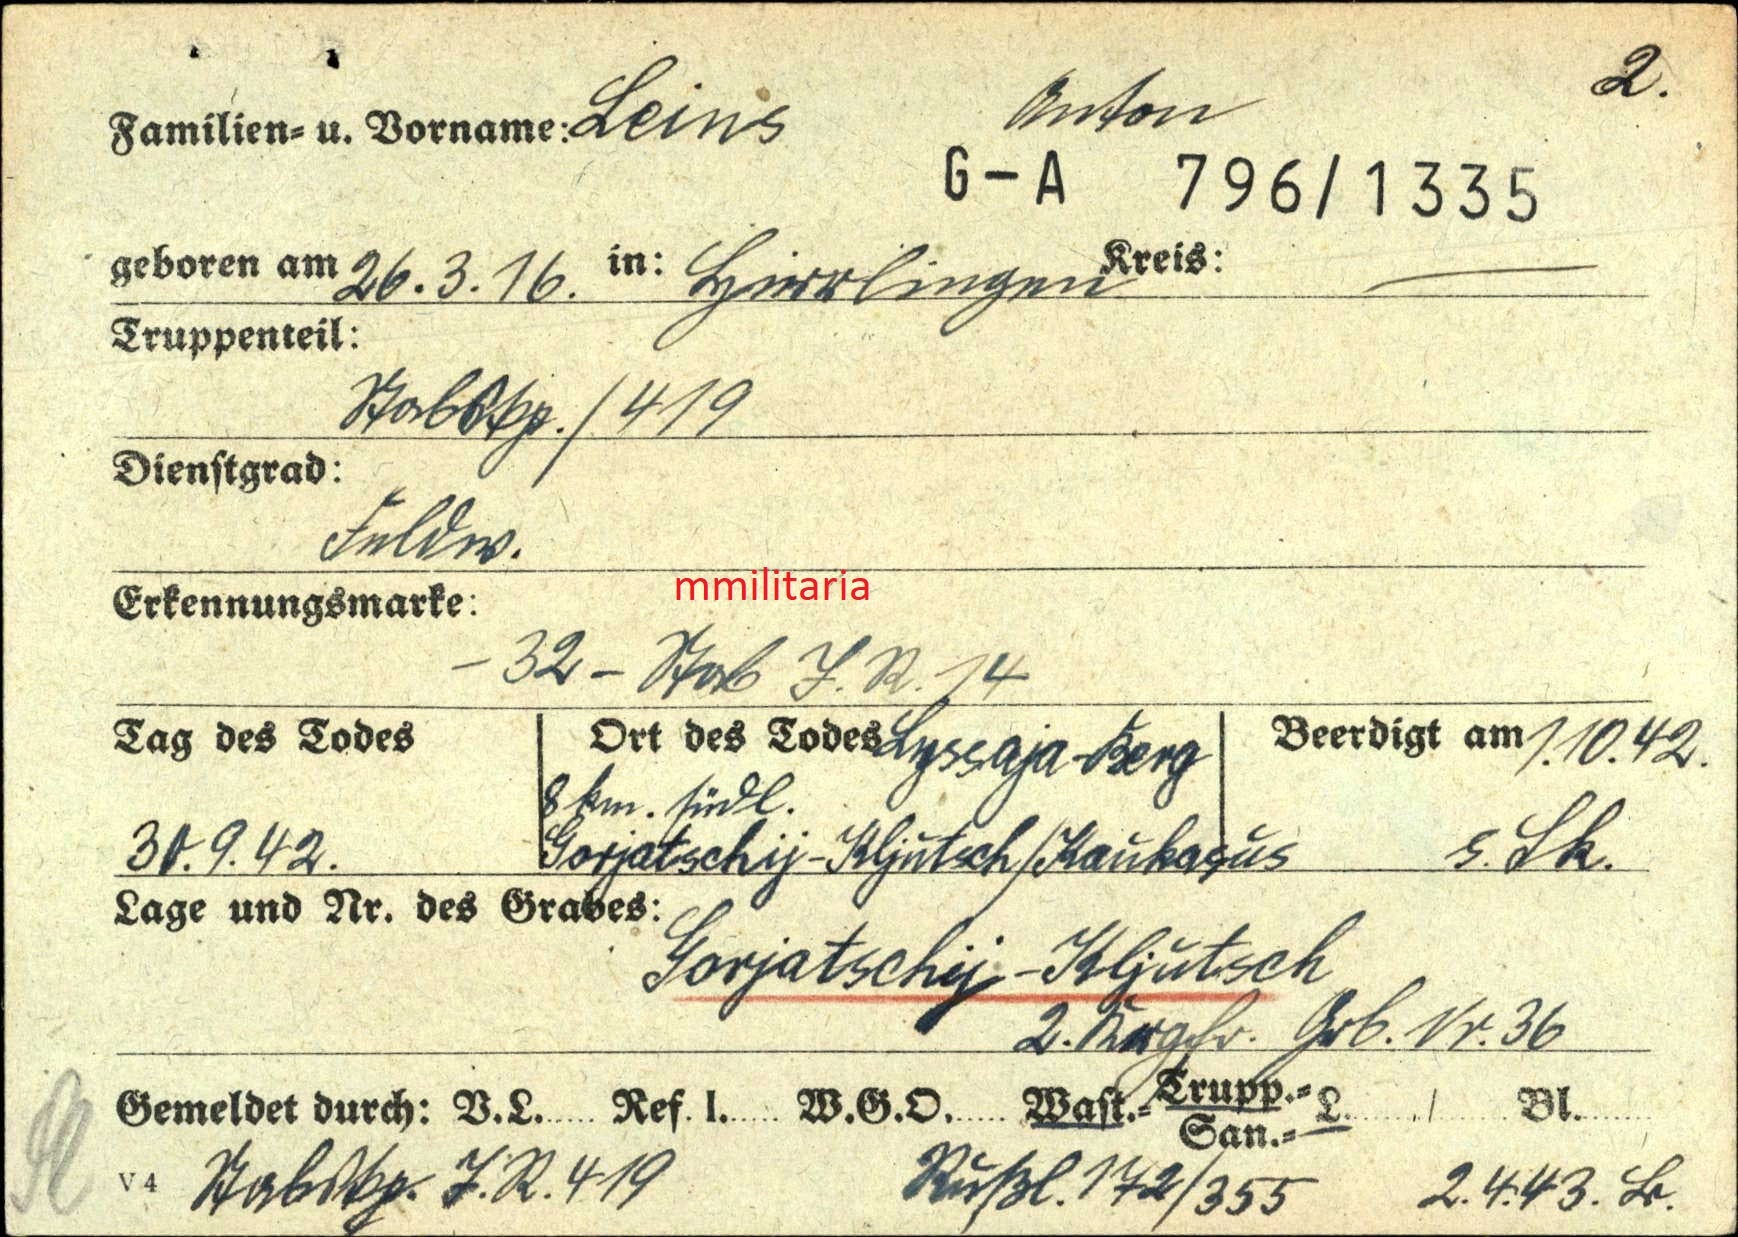 2.
Familien- u. Vorname: Leins Anton
G-A 796/1335
geboren am 26.3.16. in: Hirrlingen Kreis: —
Truppenteil:
Stabskp./419
Dienstgrad:
Feldw.
mmilitaria
Erkennungsmarke:
-32- Stab J.R. 14
Tag des Todes
30.9.42.
Ort des Todes Lyssaja-Berg
8 km. südl.
Gorjatschij-Kljutsch/Kaukasus
Beerdigt am 1.10.42.
s. Lk.
Lage und Nr. des Grabes:
Gorjatschij-Kljutsch
2. Grb. Nr. 36
Gemeldet durch: V.L..... Ref. I..... W.G.O..... Wast.- Trupp.- L. Bl.
San.-
V4 Stabskp. J.R. 419 Rußl. 172/355 2.4.43.